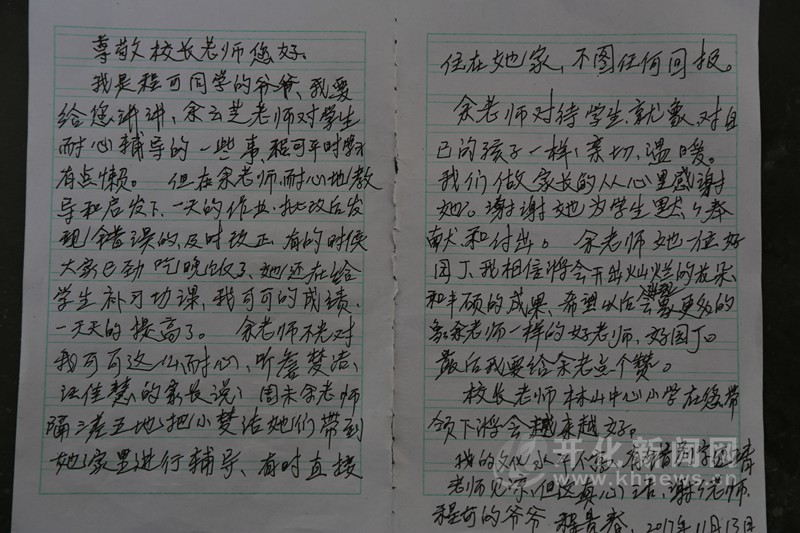 尊敬校长老师您好、
我是程可同学的爷爷、我要
给您讲讲、余云芝老师对学生
耐心辅导的一些事、程可平时学习
有点懒。但在余老师、耐心地教
导和启发下、一天的作业、批改后发
现错误的、及时改正、有的时侯
大家已到吃晚饭了、她还在给
学生补习功课、我可可的成绩、
一天天的提高了。余老师不光对
我可可这么耐心、听詹梦洁、
汪佳慧的家长说、周末余老师
隔三差五地把小梦洁她们带到
她家里进行辅导、有时直接
住在她家、不图任何回报。
余老师对待学生、就象、对自
己的孩子一样、亲切、温暖。
我们做家长的从心里感谢
她。谢谢她为学生默默奉
献和付出。余老师她一位好
园丁、我相信将会开出灿烂的花朵
和丰硕的成果、希望以后会更多的
象余老师一样的好老师、好园丁。
最后我要给余老点个赞。
校长老师林山中心小学在您带
领下将会越来越好。
我的文化水平不高、有 请
老师见谅、但这真心话、谢谢老师、
程可的爷爷 程贵春、2017年11月13日
开化新闻网
www.khnews.cn